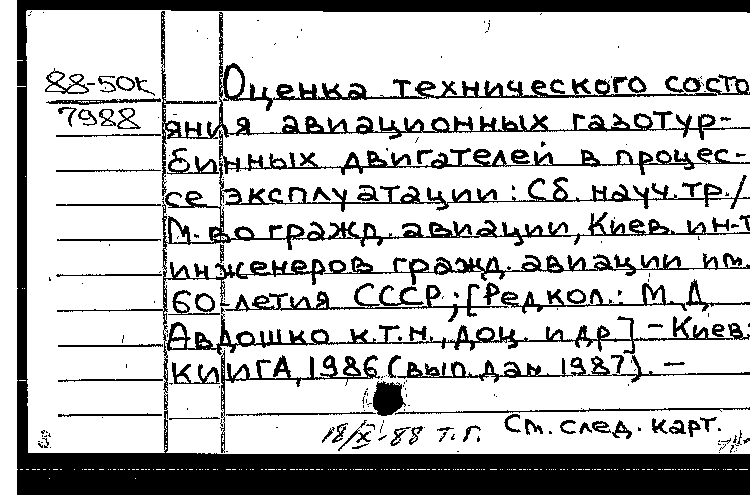 88-50к
7988
Оценка технического состо
яния авиационных газотур-
бинных двигателей в процес-
се эксплуатации: Сб. науч. тр./
М-во гражд. авиации, Киев. ин-т
инженеров гражд. авиации им.
60-летия СССР; [Редкол.: М.Д.
Авдошко к.т.н., доц. и др.] - Киев:
КИИГА, 1986 (вып. дан. 1987). -
18/X-88 т.г. См. след. карт.